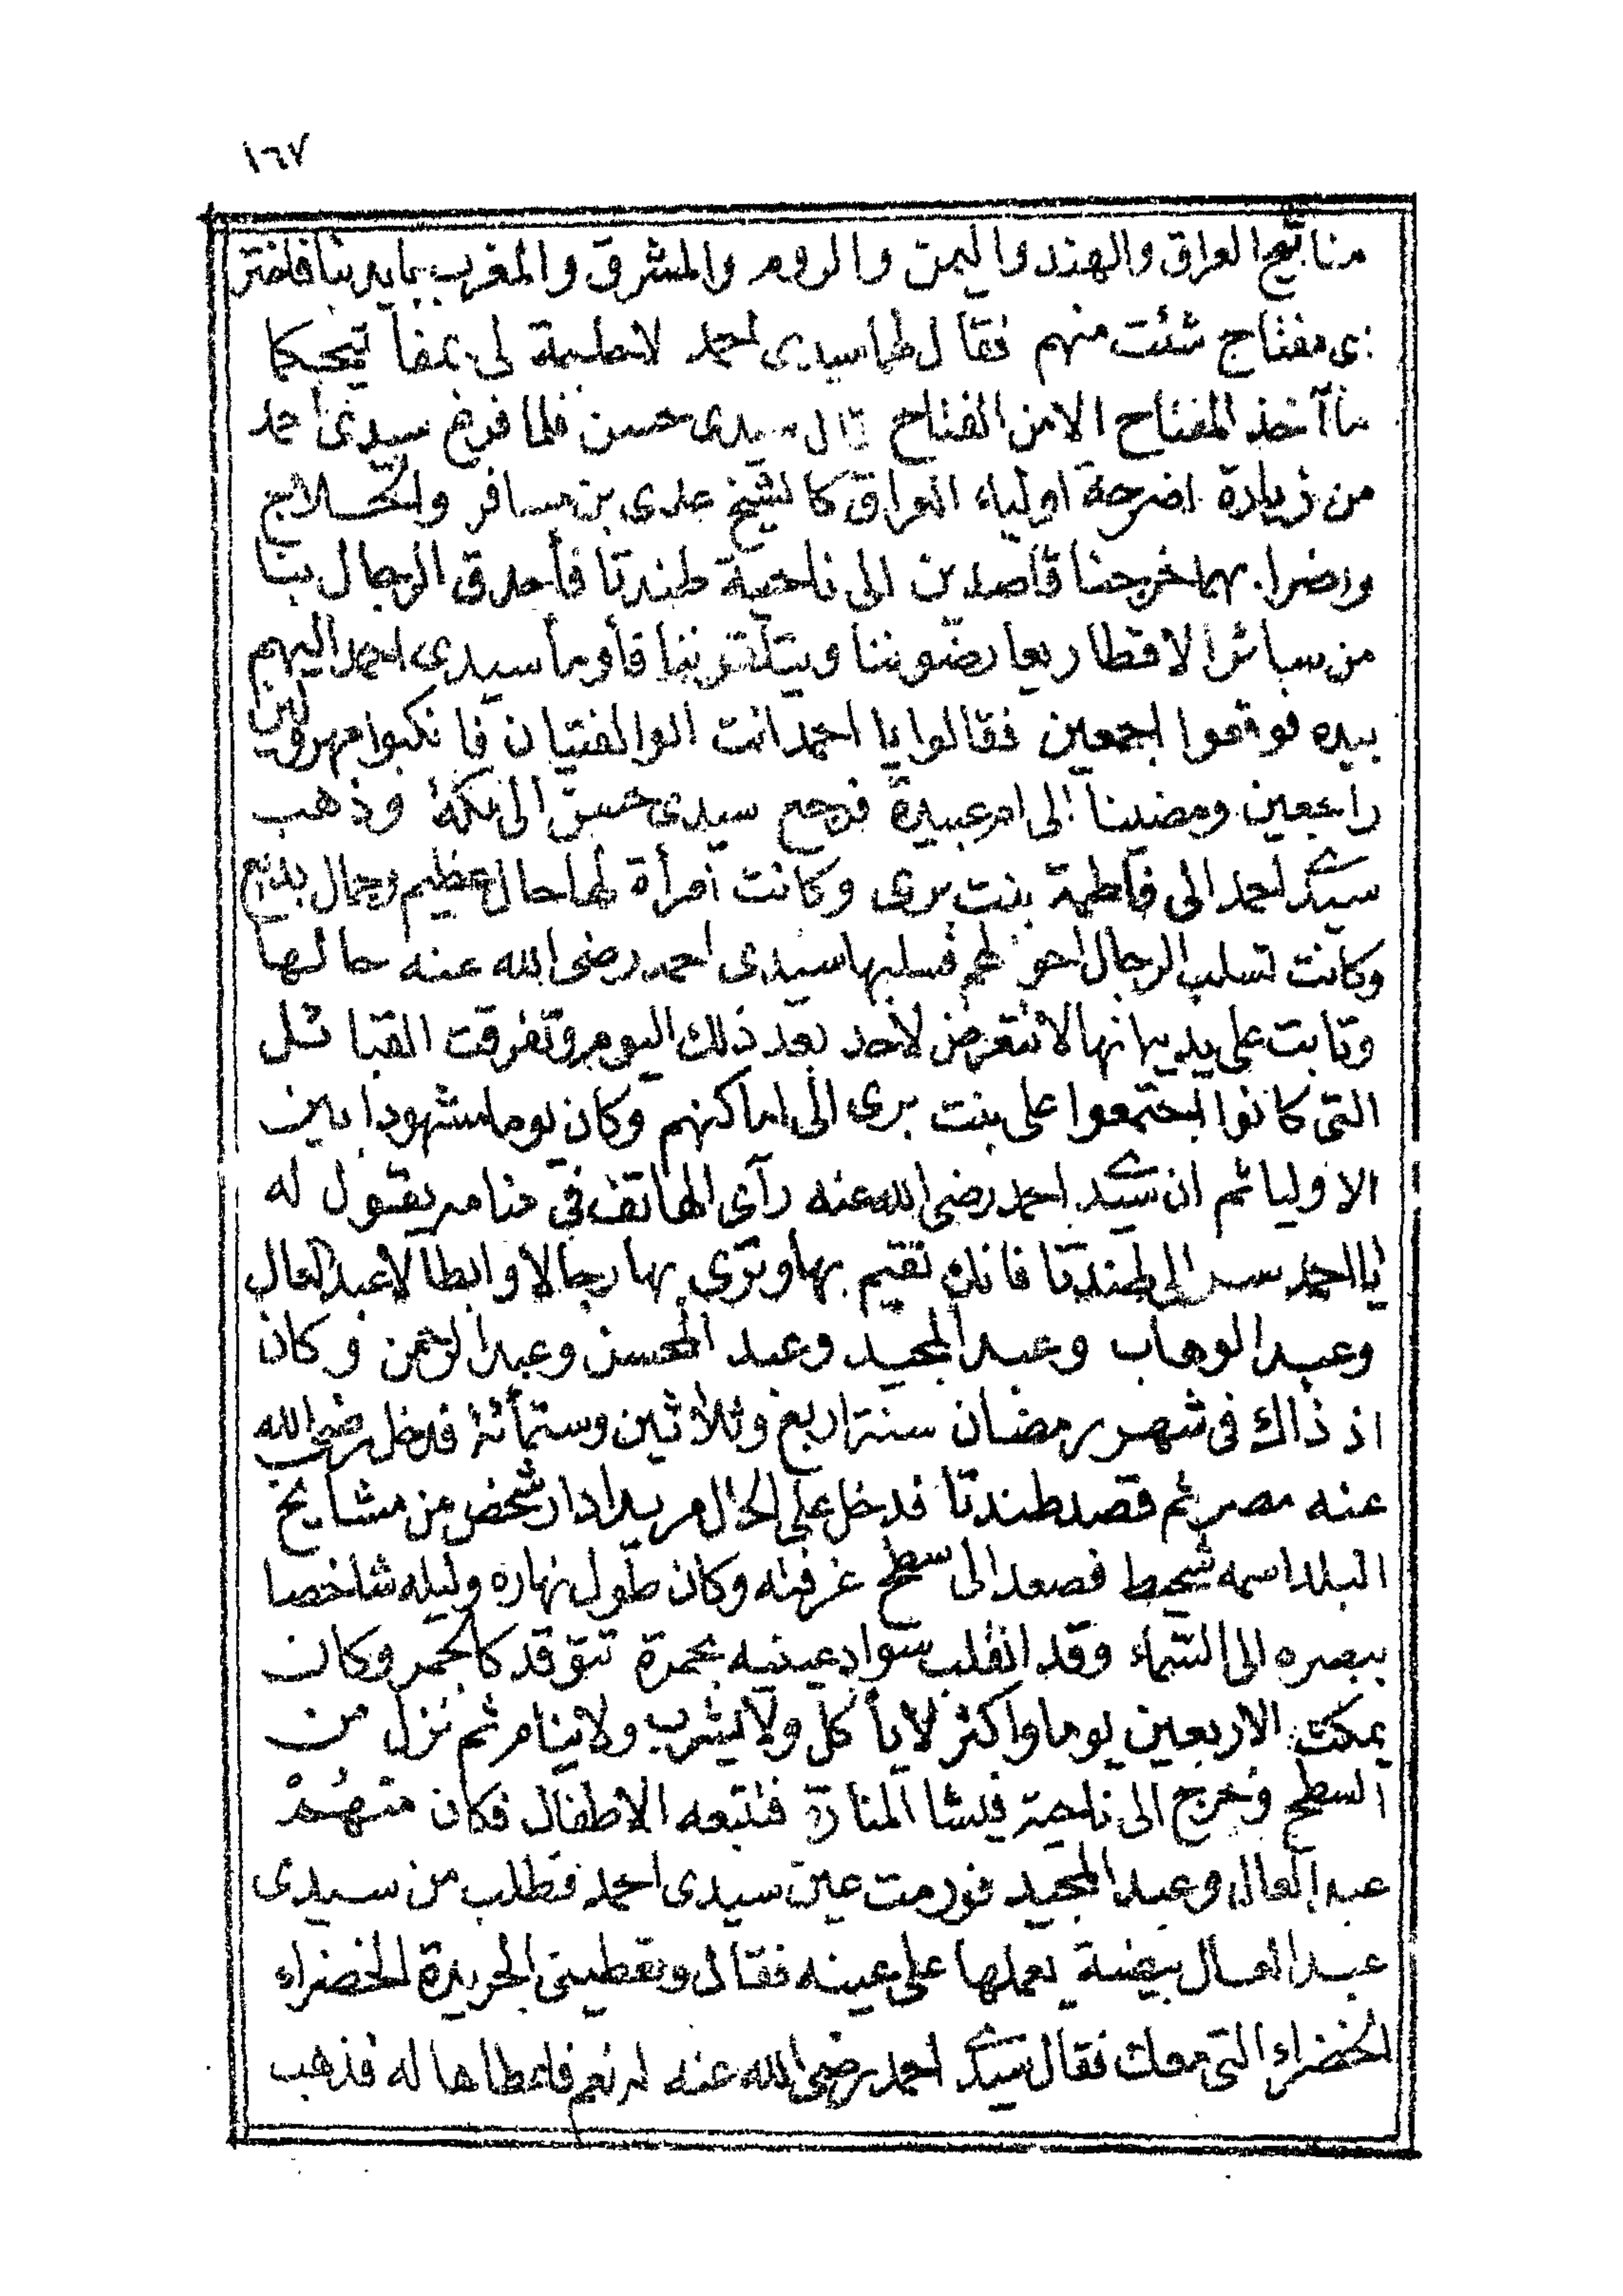 ١٦٧
مفاتيح العراق والهند واليمن والروم والمشرق والمغرب بايدينا فاختر
اى مفتاح شئت منهم فقال لهما سيدى احمد لا حاجة لى بمفاتيحكما
ما آخذ المفتاح الا من الفتاح قال سيدى حسن فلما فرغ سيدى احمد
من زيارة اضرحة اولياء العراق كالشيخ عدى بن مسافر والحلاج
واضرابهما خرجنا قاصدين الى ناحية طندتا فأحدق الرجال بنا
من سائر الاقطار يعارضوننا ويتأ بنا فأومأ سيدى احمد اليهم
بيده فوقعوا اجمعين فقالوا يا احمد انت ابو الفتيان فانكبوا مهرولين
راجعين ومضينا الى ام عبيدة فرجع سيدى حسن الى مكة وذهب
سيدى احمد الى فاطمة بنت برى وكانت امرأة لها حال عظيم وجمال بديع
وكانت تسلب الرجال احوالهم فسلبها سيدى احمد رضى الله عنه حالها
وتابت على يديه انها لا تتعرض لأحد بعد ذلك اليوم وتفرقت القبائل
التى كانوا اجتمعوا على بنت برى الى اماكنهم وكان يوما مشهودا بين
الاوليا ثم ان سيدى احمد رضى الله عنه رآى الهاتف فى منامه يقول له
يا احمد سر الى طندتا فانك تقيم بها وتربى بها رجالا وابطالا عبد العال
وعبد الوهاب وعبد المجيد وعبد المحسن وعبد الرحمن وكان
اذ ذاك فى شهر رمضان سنة اربع وثلاثين وستمائة فدخل رضى الله
عنه مصر ثم قصد طندتا فدخل على الحال مريدا دار شخص من مشايخ
البلد اسمه شحيط فصعد الى سطح غرفته وكان طول نهاره وليله شاخصا
ببصره الى السماء وقد انقلب سواد عينيه بحمرة تتوقد كالجمر وكان
يمكث الاربعين يوما واكثر لا يأكل ولا يشرب ولا ينام ثم نزل من
السطح وخرج الى ناحية فيشا المنارة فتبعه الاطفال فكان منهم
عبد العال وعبد المجيد فورمت عين سيدى احمد فطلب من سيدى
عبد العال بيضة يعملها على عينه فقال وتعطينى الجريدة الخضراء
الخضراء التى معك فقال سيدى احمد رضى الله عنه له نعم فاعطاها له فذهب